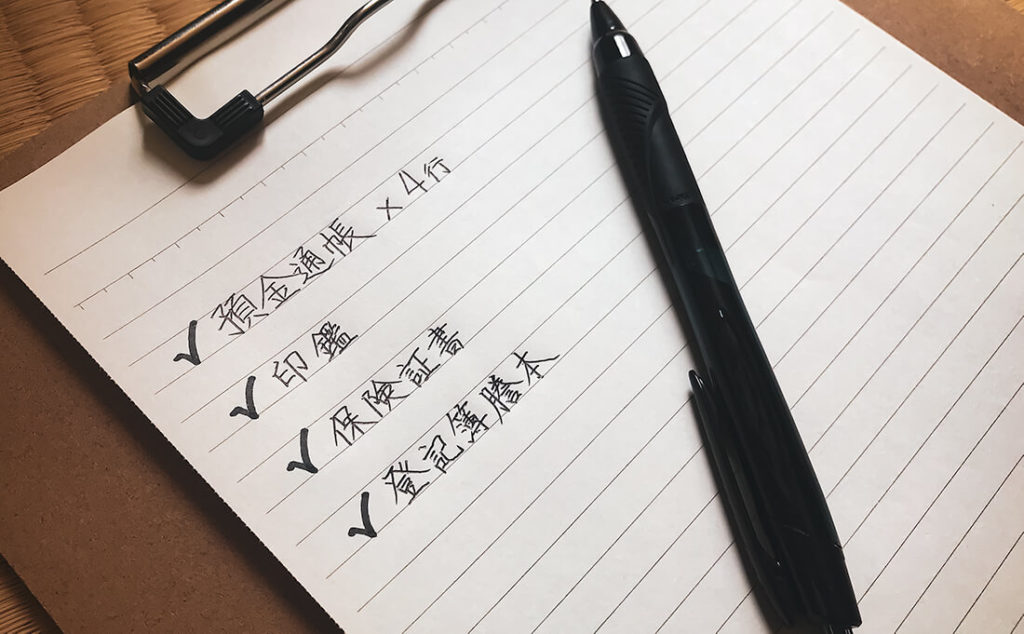 ✓ 預金通帳 × 4行
✓ 印鑑
✓ 保険証書
✓ 登記簿謄本